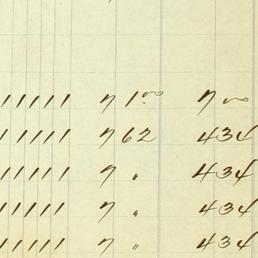 11111 7 1.00 7 00
11111 7 62 434
11111 7 " 434
11111 7 " 434
11111 7 " 434